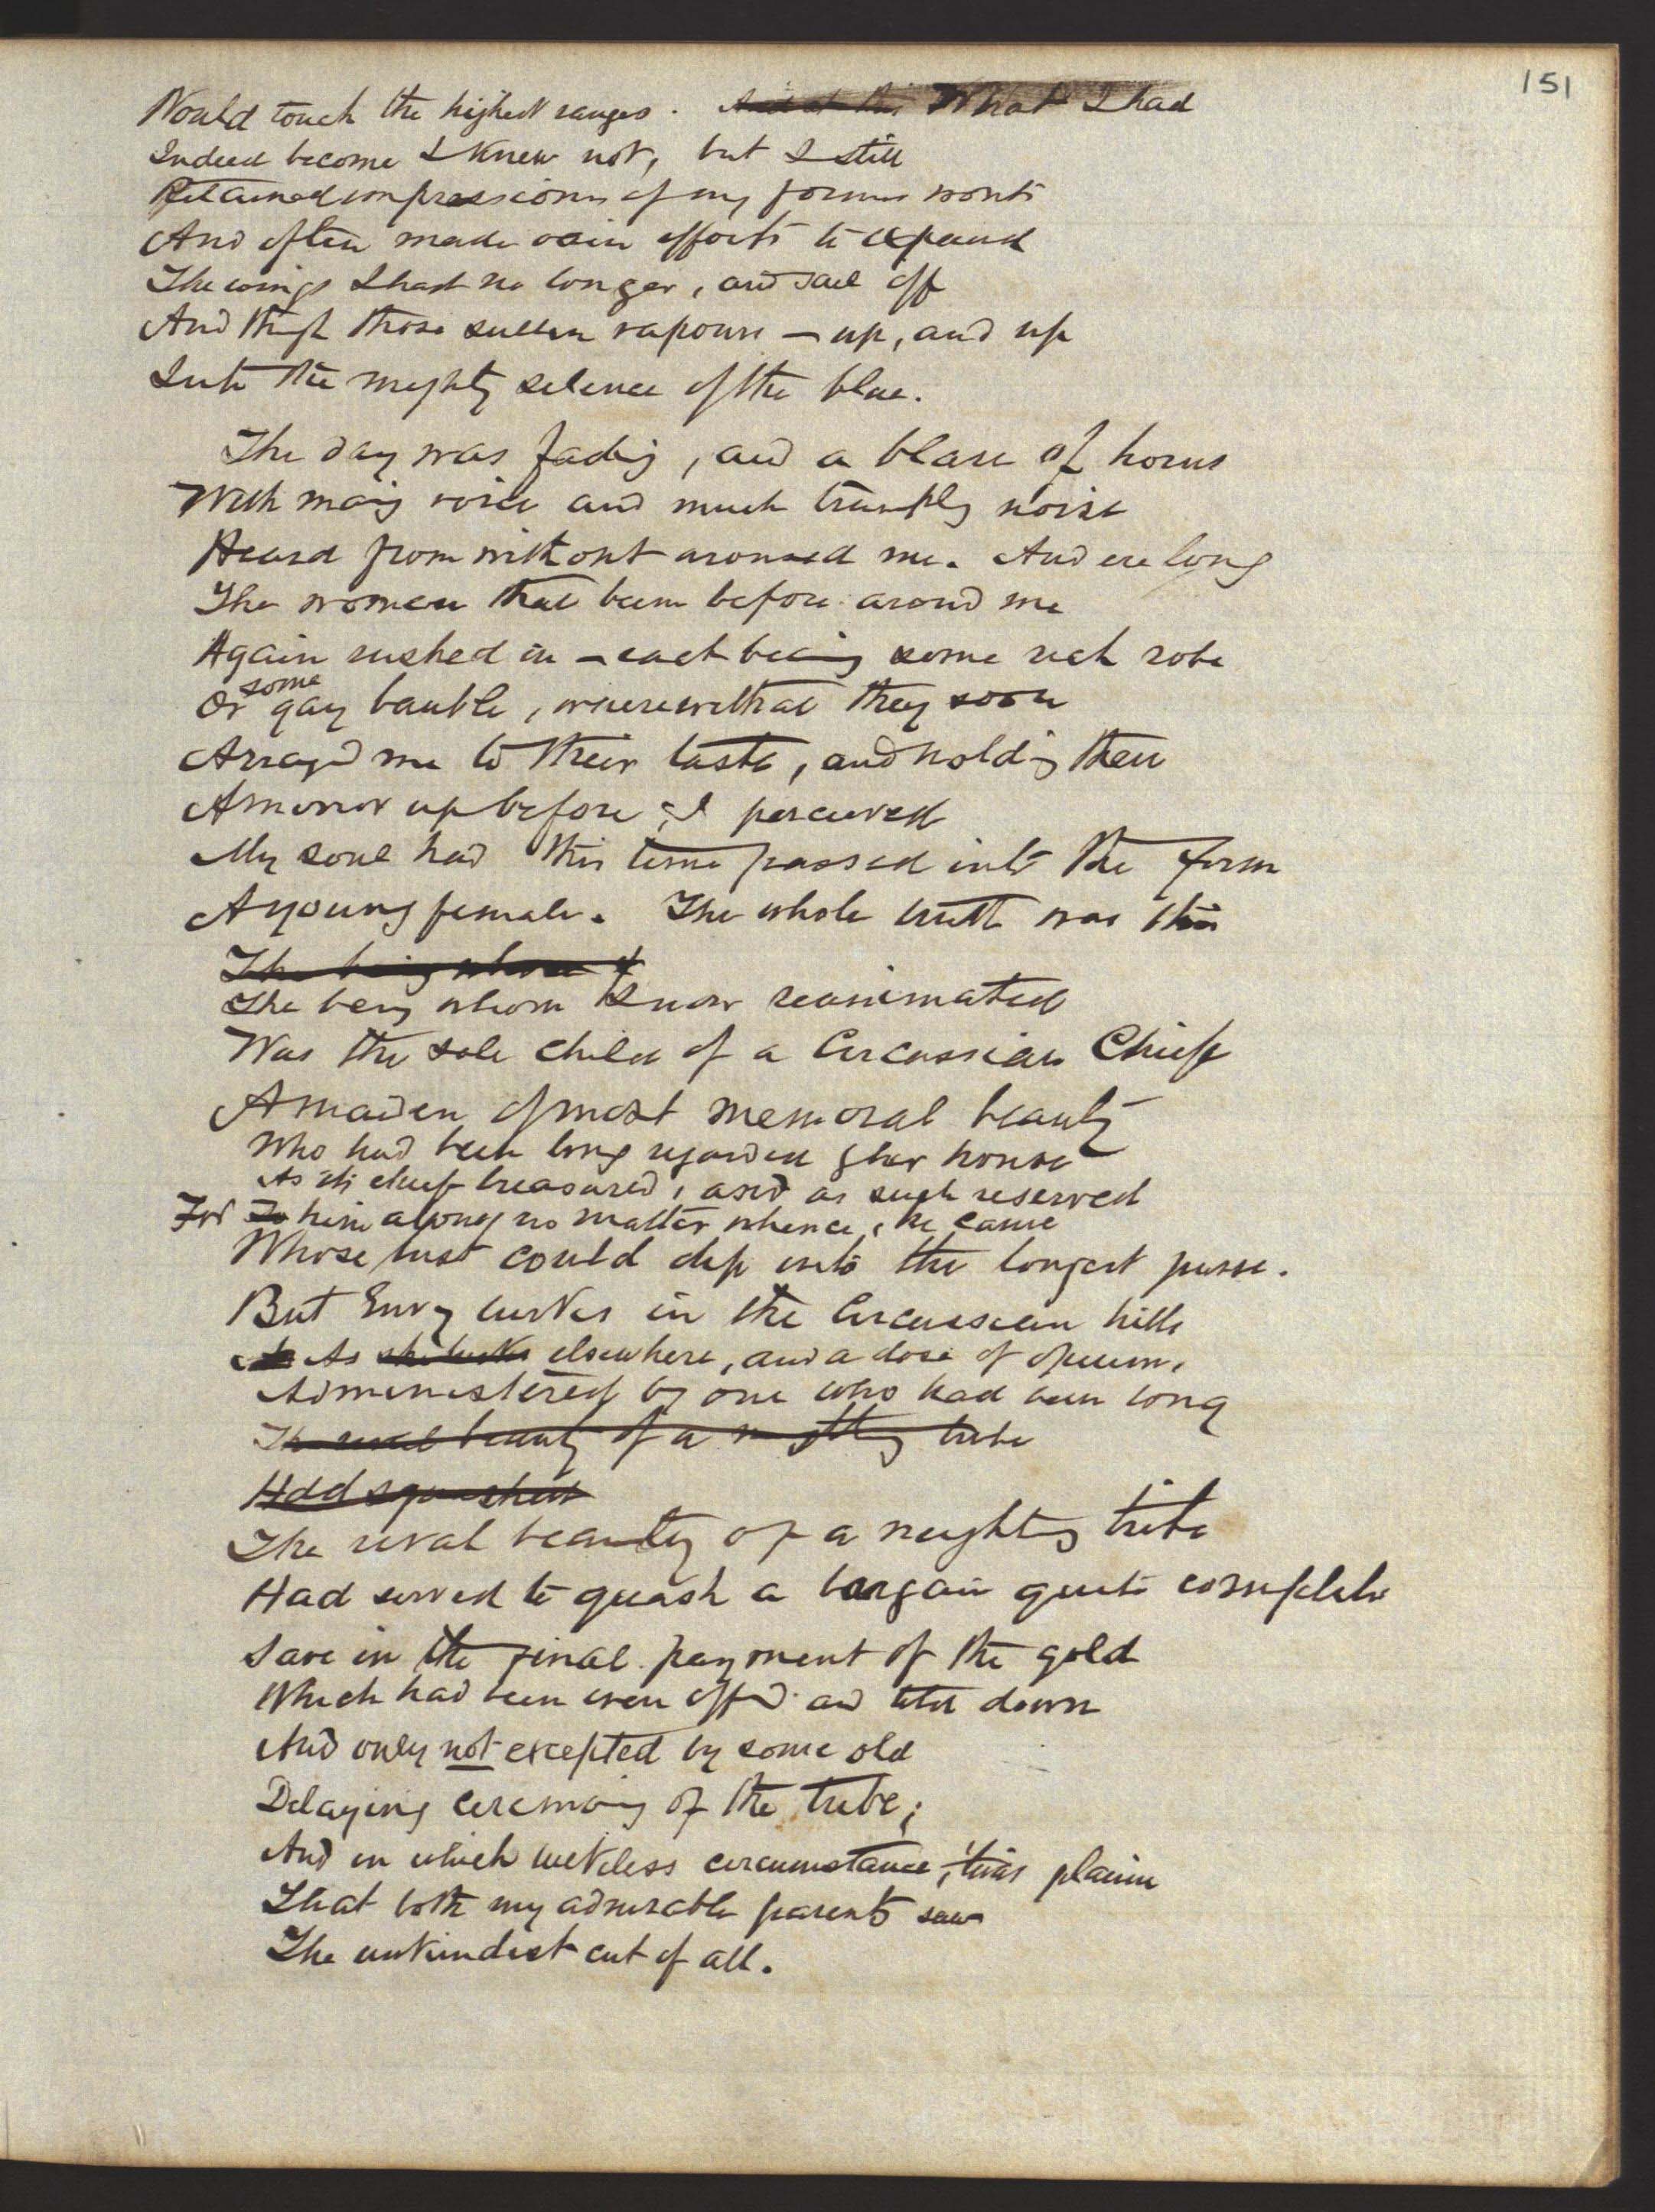 151
Would touch the highest ranges. And at this What I had
Indeed become I knew not, but I still
Retained impressions of my former wonts
And often made vain efforts to expand
The wings I had no longer, and sail off
And thro' those sullen vapours — up, and up
Into the mighty silence of the blue.
The day was fading, and a blare of horns
With many voices and much trampling noise
Heard from without aroused me. And ere long
The women that been before around me
Again rushed in — each being some rich robe
some
Or gay bauble, wherewithal they soon
Array'd me to their taste, and holding then
A mirror up before, I perceived
My soul had this time passed into the form
A young female. The whole truth was this
The being whom I
The being whom I now reanimated
Was the sole child of a Circassian Chief
A maiden of most memoral beauty
Who had been long regarded of her house
As its chief treasured, and as such reserved
For To him along no matter whence, he came
Whose lust could dip into the longest purse.
But Envy lurks in the Circassian hills
As As she lurks elsewhere, and a dose of opium,
Administered by one who had been long
The rival beauty of a neighb'ring tribe
Had squashed
The rival beauty of a neighb'ring tribe
Had served to quash a bargain quite complete
Save in the final payment of the gold
Which had been even off'd and told down
And only not excepted by some old
Delaying ceremony of the tribe;
And in which luckless circumstance, 'twas plain
That both my admirable parents saw
The unkindest cut of all.